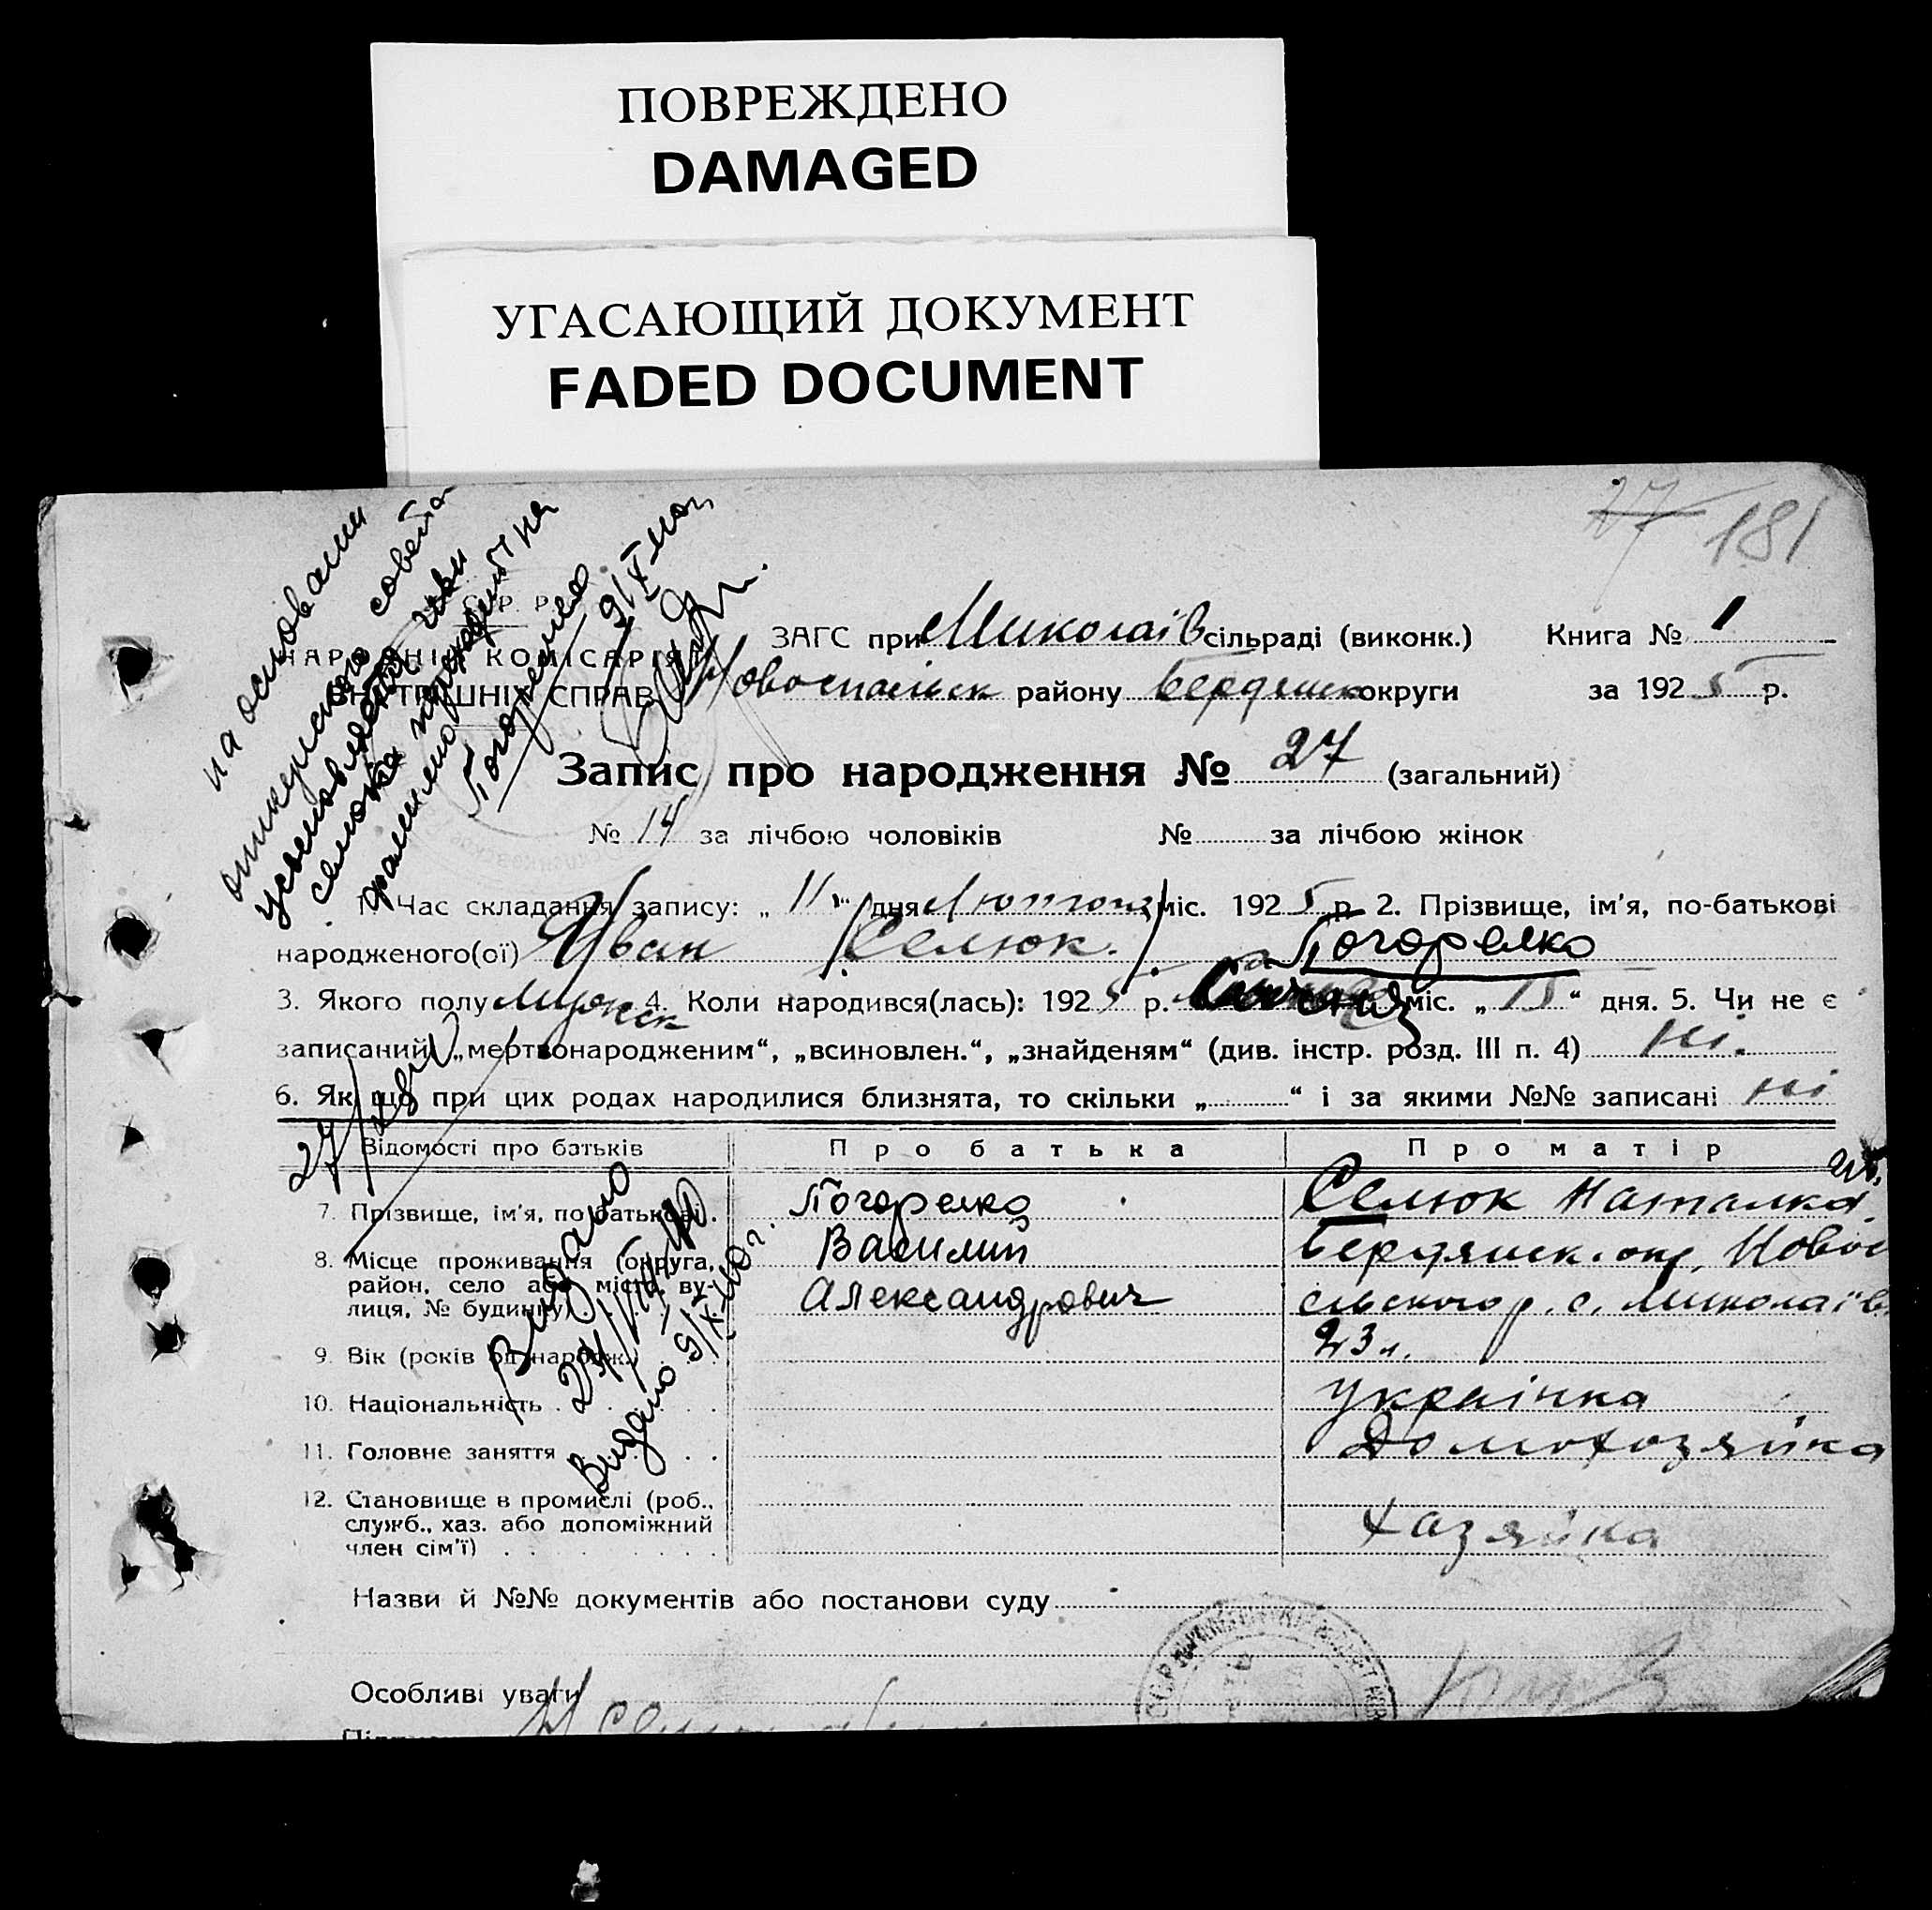 ПОВРЕЖДЕНО
DAMAGED
УГАСАЮЩИЙ ДОКУМЕНТ
FADED DOCUMENT
27 181
на основании
совета
селюка
фамилию
Погорелко
9/X-40г.
НАРОДНІЙ КОМІСАРІЯТ
ВНУТРІШНІХ СПРАВ
ЗАГС при Миколаїв сільраді (виконк.) Книга № 1
Новоспаськ району Бердянск округи за 1925 р.
Запис про народження № 27 (загальний)
№ 14 за лічбою чоловіків № за лічбою жінок
1. Час складання запису: „11“ дня Лютого міс. 1925 р. 2. Прізвище, ім'я, по-батькові
народженого(ої) Иван /Селюк./ Погорелко
3. Якого полу мужск 4. Коли народився(лась): 1925 р. Січня міс. „15“ дня. 5. Чи не є
записаний „мертвонародженим“, „всиновлен.“, „знайденям“ (див. інстр. розд. III п. 4) ні.
6. Якщо при цих родах народилися близнята, то скільки „ “ і за якими №№ записані ні
Відомості про батьків Про батька Про матір
7. Прізвище, ім'я, по батькові Погорелко Селюк Наталка
8. Місце проживання (округа, Василий Бердянск. окр. Новос
район, село або місто, ву- Александрович ського р. с. Миколаїв
лиця, № будинку)
9. Вік (років од народж.) 23 л.
10. Національність українка
11. Головне заняття Домохозяйка
12. Становище в промислі (роб.,
служб., хаз. або допоміжний хазяйка
член сім'ї)
Видано
Видано 9/X-40г.
Назви й №№ документів або постанови суду
Особливі уваги